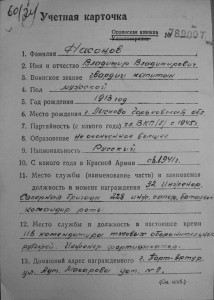 60/24
Учетная карточка
1. Фамилия Насонов
2. Имя и отчество Владимир Владимирович
3. Воинское звание гвардии капитан
4. Пол мужской
5. Год рождения 1913 год
6. Место рождения Горьковской обл.
7. Партийность (с какого года) чл. ВКП(б) с 1945г.
8. Образование не оконченное высшее
9. Национальность Русский
10. С какого года в Красной Армии с 1941г.
11. Место службы (наименование части) и занимаемая
должность в момент награждения 32 Инженер.
Саперная бригада 228
командир роты
12. Место службы и должность в настоящее время
116 комендатура
рубежей. Инженер фортификатор.
13. Домашний адрес награжденного г. Порт-Артур
ул. Адм. Макарова